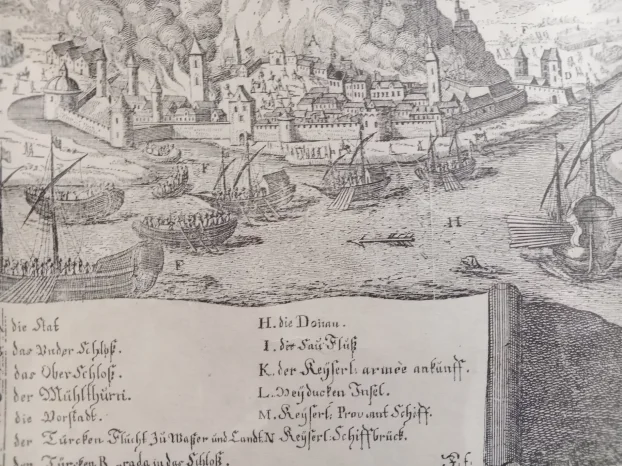 F
F
H
D
die Stat
das Under Schloß.
das Ober Schloß.
der Mühlthürn.
die Vorstadt.
der Türcken Flucht zu Wasser und Landt.
den Türcken in das Schloß.
H. die Donau.
I. der Sau Fluß
K. der Keyserl: armée ankunfft.
L. Heyducken Insel.
M. Keyserl: Proviant Schiff.
N Keyserl: Schiffbrück.